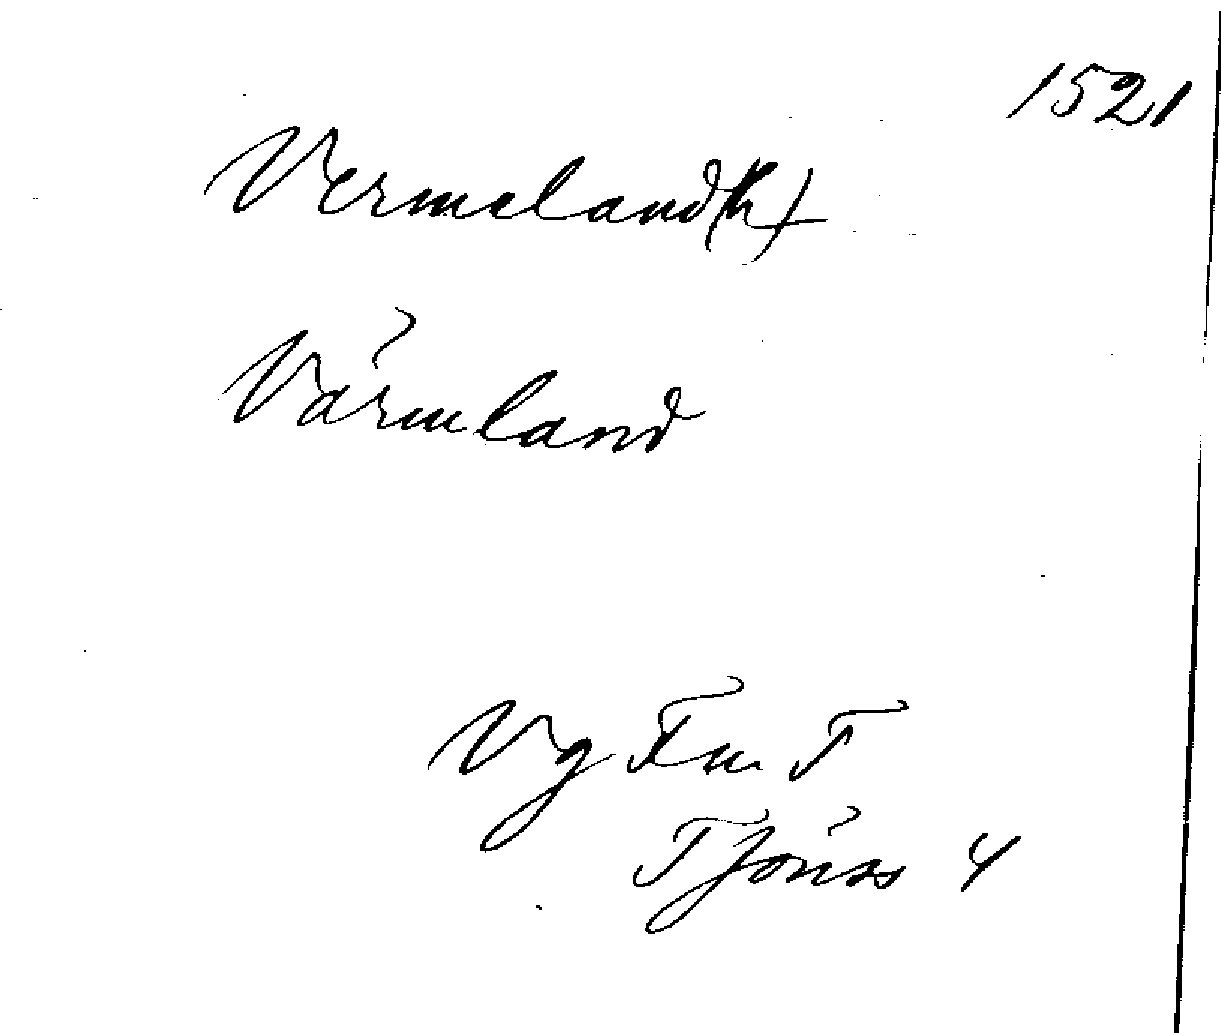 1521
Vermeland(h)t
Värmland
Vg Fm T
Tjörns 4